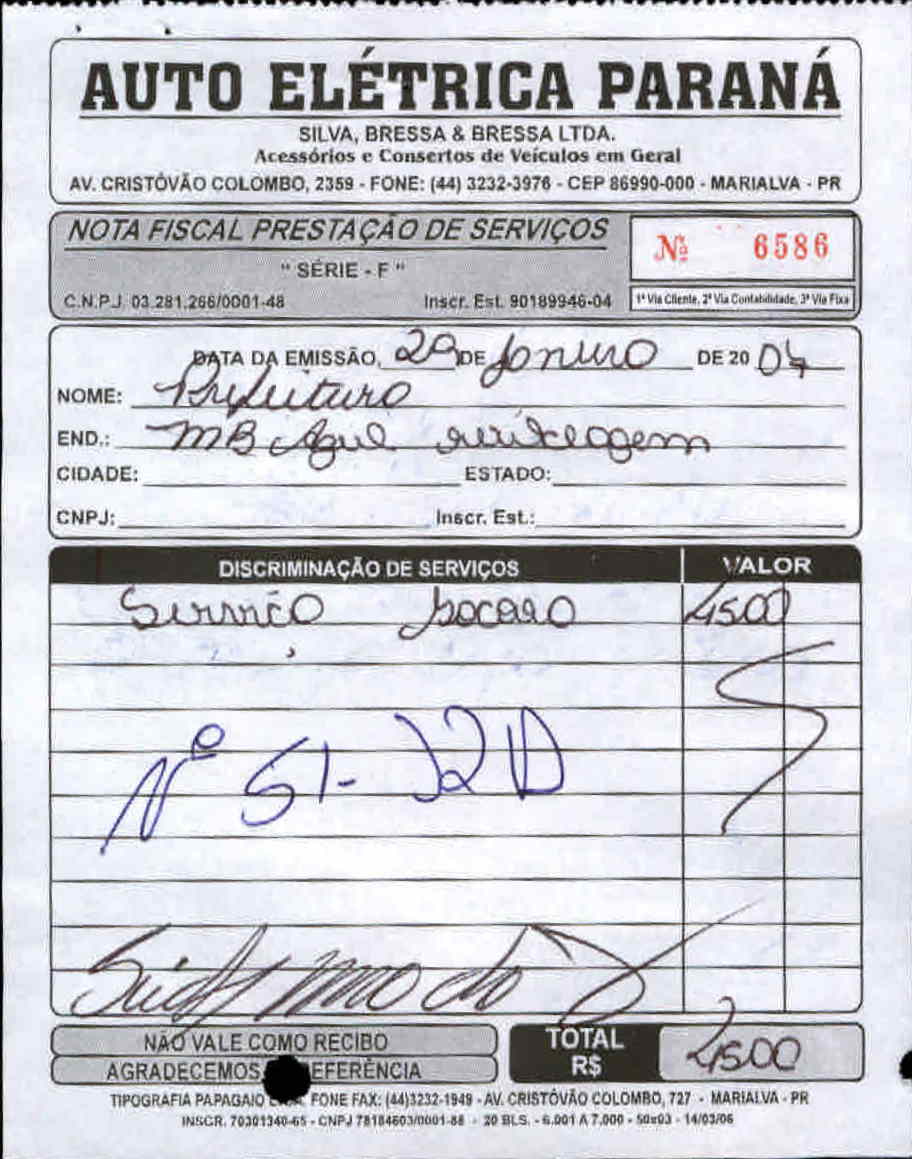 AUTO ELÉTRICA PARANÁ
SILVA, BRESSA & BRESSA LTDA.
Acessórios e Consertos de Veículos em Geral
AV. CRISTÓVÃO COLOMBO, 2359 - FONE: (44) 3232-3976 - CEP 86990-000 - MARIALVA - PR
NOTA FISCAL PRESTAÇÃO DE SERVIÇOS
" SÉRIE - F "
Nº 6586
C.N.P.J. 03.281.266/0001-48 Inscr. Est. 90189946-04
1ª Via Cliente, 2ª Via Contabilidade, 3ª Via Fixa
DATA DA EMISSÃO, 29 DE Janeiro DE 20 07
NOME: Prefeitura
END.: MB Azul
CIDADE: ESTADO:
CNPJ: Inscr. Est.:
DISCRIMINAÇÃO DE SERVIÇOS VALOR
Serviço Socorro 4500
Nº 51- 12D
NÃO VALE COMO RECIBO
AGRADECEMOS EFERÊNCIA
TOTAL R$ 4500
TIPOGRAFIA PAPAGAIO FONE FAX: (44)3232-1949 - AV. CRISTÓVÃO COLOMBO, 727 - MARIALVA - PR
INSCR. 70301340-65 - CNPJ 78184603/0001-88 - 20 BLS. - 6.001 A 7.000 - 50x03 - 14/03/06